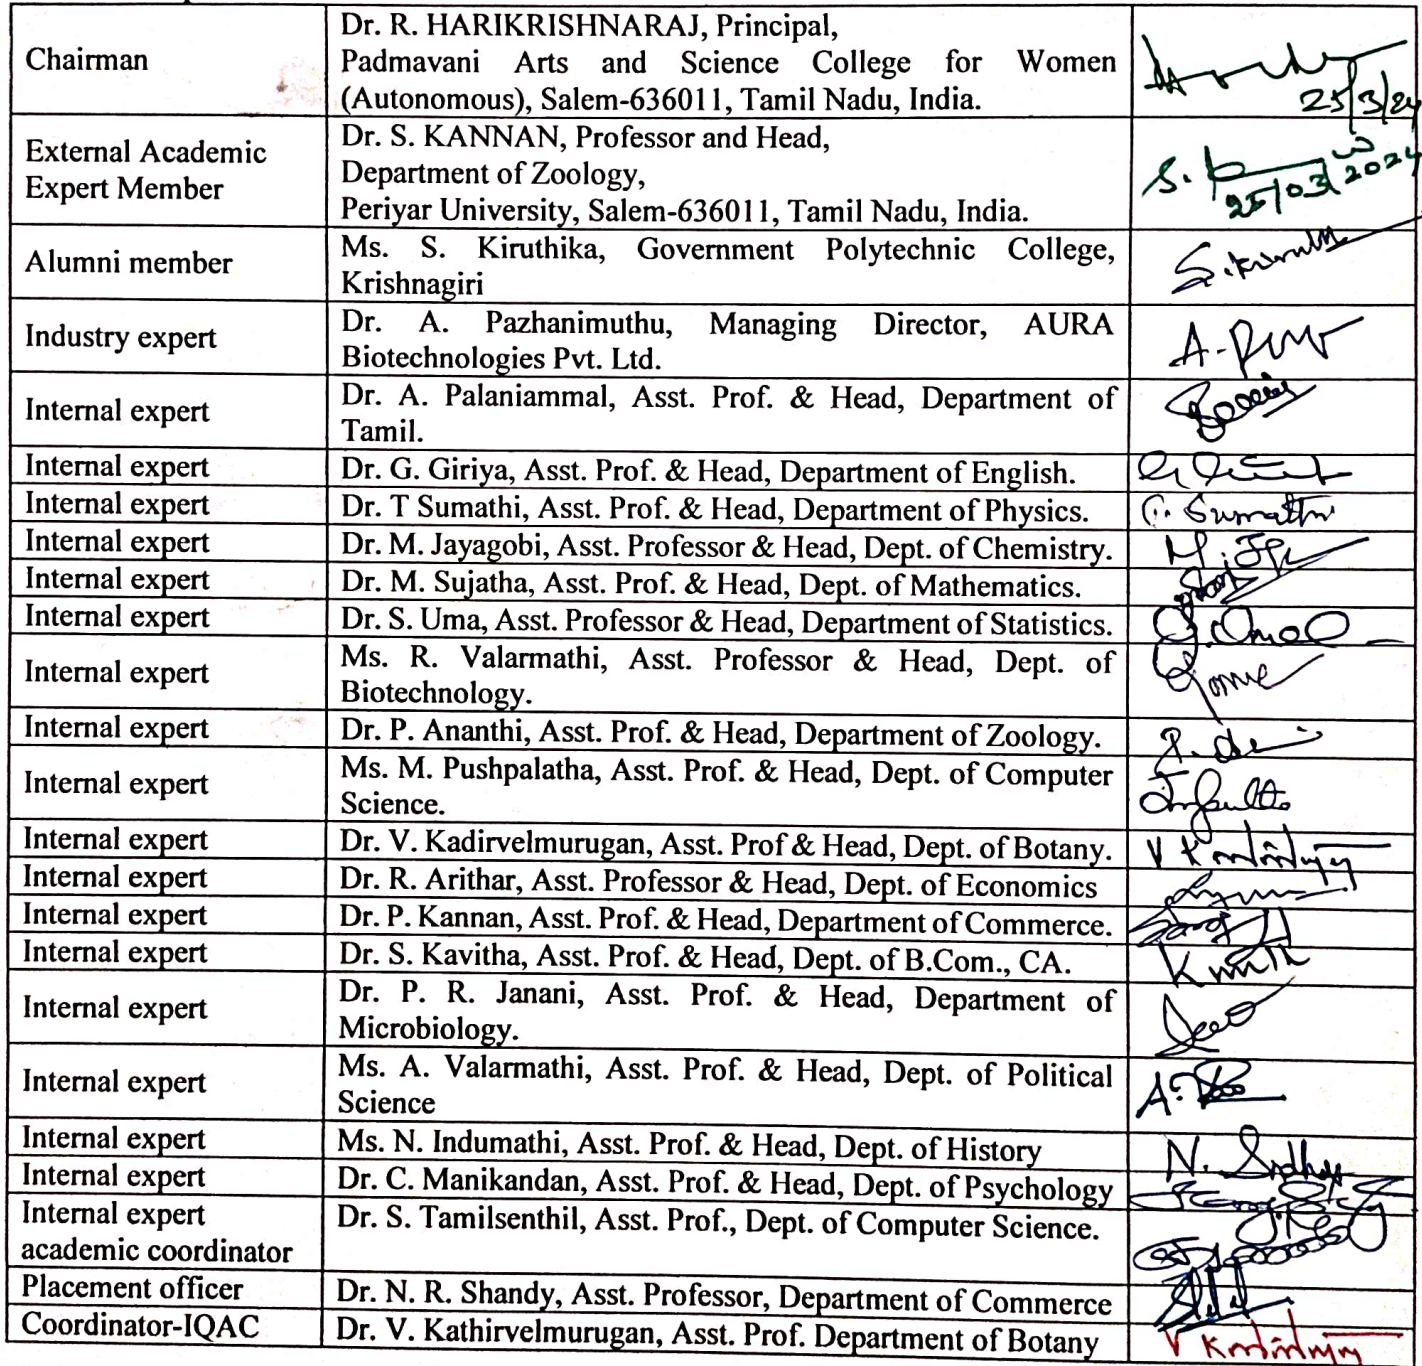 Chairman
Dr. R. HARIKRISHNARAJ, Principal,
Padmavani Arts and Science College for Women
(Autonomous), Salem-636011, Tamil Nadu, India.
25/3/24
External Academic
Expert Member
Dr. S. KANNAN, Professor and Head,
Department of Zoology,
Periyar University, Salem-636011, Tamil Nadu, India.
S.
25/03/2024
Alumni member
Ms. S. Kiruthika, Government Polytechnic College,
Krishnagiri
Industry expert
Dr. A. Pazhanimuthu, Managing Director, AURA
Biotechnologies Pvt. Ltd.
Internal expert
Dr. A. Palaniammal, Asst. Prof. & Head, Department of
Tamil.
Internal expert
Dr. G. Giriya, Asst. Prof. & Head, Department of English.
Internal expert
Dr. T Sumathi, Asst. Prof. & Head, Department of Physics.
Sumathi
Internal expert
Dr. M. Jayagobi, Asst. Professor & Head, Dept. of Chemistry.
Internal expert
Dr. M. Sujatha, Asst. Prof. & Head, Dept. of Mathematics.
Internal expert
Dr. S. Uma, Asst. Professor & Head, Department of Statistics.
Internal expert
Ms. R. Valarmathi, Asst. Professor & Head, Dept. of
Biotechnology.
Internal expert
Dr. P. Ananthi, Asst. Prof. & Head, Department of Zoology.
Internal expert
Ms. M. Pushpalatha, Asst. Prof. & Head, Dept. of Computer
Science.
Internal expert
Dr. V. Kadirvelmurugan, Asst. Prof & Head, Dept. of Botany.
Internal expert
Dr. R. Arithar, Asst. Professor & Head, Dept. of Economics
Internal expert
Dr. P. Kannan, Asst. Prof. & Head, Department of Commerce.
Internal expert
Dr. S. Kavitha, Asst. Prof. & Head, Dept. of B.Com., CA.
Internal expert
Dr. P. R. Janani, Asst. Prof. & Head, Department of
Microbiology.
Internal expert
Ms. A. Valarmathi, Asst. Prof. & Head, Dept. of Political
Science
Internal expert
Ms. N. Indumathi, Asst. Prof. & Head, Dept. of History
Internal expert
Dr. C. Manikandan, Asst. Prof. & Head, Dept. of Psychology
Internal expert
academic coordinator
Dr. S. Tamilsenthil, Asst. Prof., Dept. of Computer Science.
Placement officer
Dr. N. R. Shandy, Asst. Professor, Department of Commerce
Coordinator-IQAC
Dr. V. Kathirvelmurugan, Asst. Prof. Department of Botany